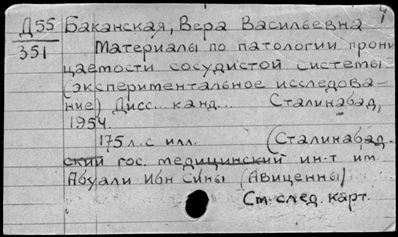 Д55 Баканская, Вера Васильевна 4
351
Материалы по патологии прони
цаемости сосудистой системы
(экспериментальное исследова-
ние) Дисс. канд... Сталинабад,
1954.
175 л. с илл. (Сталинабад-
ский гос. медицинский ин-т им.
Абуали Ибн Сины (Авиценны)
См. след. карт.